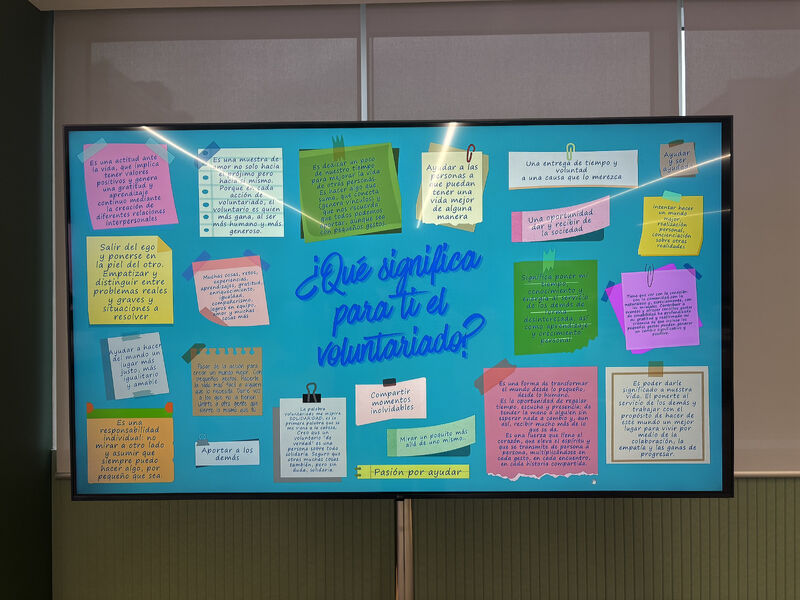 Es una actitud ante
la vida, que implica
tener valores
positivos y genera
una gratitud y
aprendizaje
continuo mediante
la creación de
diferentes relaciones
interpersonales
Es una muestra de
amor no solo hacia
el prójimo pero
hacia sí mismo.
Porque en cada
acción de
voluntariado, el
voluntario es quien
más gana, al ser
más humano y más
generoso.
Es dedicar un poco
de nuestro tiempo
para mejorar la vida
de otras personas.
Es hacer algo que
suma, que conecta
genera vínculos y
que nos recuerda
que todos podemos
aportar, aunque sea
con pequeños gestos
Ayudar a las
personas a
que puedan
tener una
vida mejor
de alguna
manera
Una entrega de tiempo y
voluntad
a una causa que lo merezca
Ayudar
y ser
ayudado
Una oportunidad
dar y recibir de
la sociedad
Intentar hacer
un mundo
mejor,
realización
personal,
concienciación
sobre otras
realidades
Salir del ego
y ponerse en
la piel del otro.
Empatizar y
distinguir entre
problemas reales
y graves y
situaciones a
resolver
Muchas cosas, retos,
experiencias,
aprendizajes, gratitud,
enriquecimiento,
igualdad,
compañerismo,
logros en equipo,
amor y muchas
cosas más
¿Qué significa
para ti el
voluntariado?
Significa poner mi
tiempo,
conocimiento y
energía al servicio
de los demás de
forma
desinteresada, así
como aprendizaje y
crecimiento
personal
Tiene que ver con la conexión
con la comunidad, con la
naturaleza y,
Ayudar a hacer
del mundo un
lugar más
justo, más
igualitario
y amable
Pasar de la acción para
crear un mundo mejor. Con
pequeños gestos, hacerle
la vida más fácil a quien
que lo necesita.
Es una
responsabilidad
individual: no
mirar a otro lado
y asumir que
siempre puedo
hacer algo, por
pequeño que sea.
Aportar a los
demás
La palabra
voluntariado me inspira
SOLIDARIDAD, es la
primera palabra que se
me viene a la cabeza.
Creo que un
voluntario "de
verdad" es una
persona sobre todo
solidaria. Seguro que
otras muchas cosas
también, pero sin
duda, solidaria.
Compartir
momentos
inolvidables
Mirar un poquito más
allá de uno mismo.
Pasión por ayudar
Es una forma de transformar
el mundo desde lo pequeño,
desde lo humano.
Es la oportunidad de regalar
tiempo, escucha y presencia; de
tender la mano a alguien, sin
esperar nada a cambio y, aun
así, recibir mucho más de lo
que se da.
Es una fuerza que tiene el
corazón, que eleva el espíritu y
que se transmite de persona a
persona, multiplicándose en
cada gesto, en cada encuentro,
en cada historia compartida.
Es poder darle
significado a nuestra
vida. El ponerte al
servicio de los demás y
trabajar con el
propósito de hacer de
este mundo un mejor
lugar para vivir por
medio de la
colaboración, la
empatía y las ganas de
progresar.